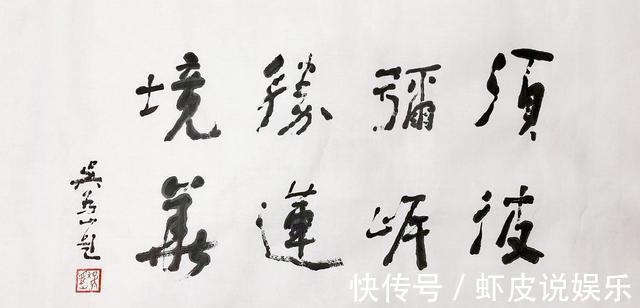 須彌勝境
彼岸蓮華
吳为山题
快传号/虾皮说娱乐